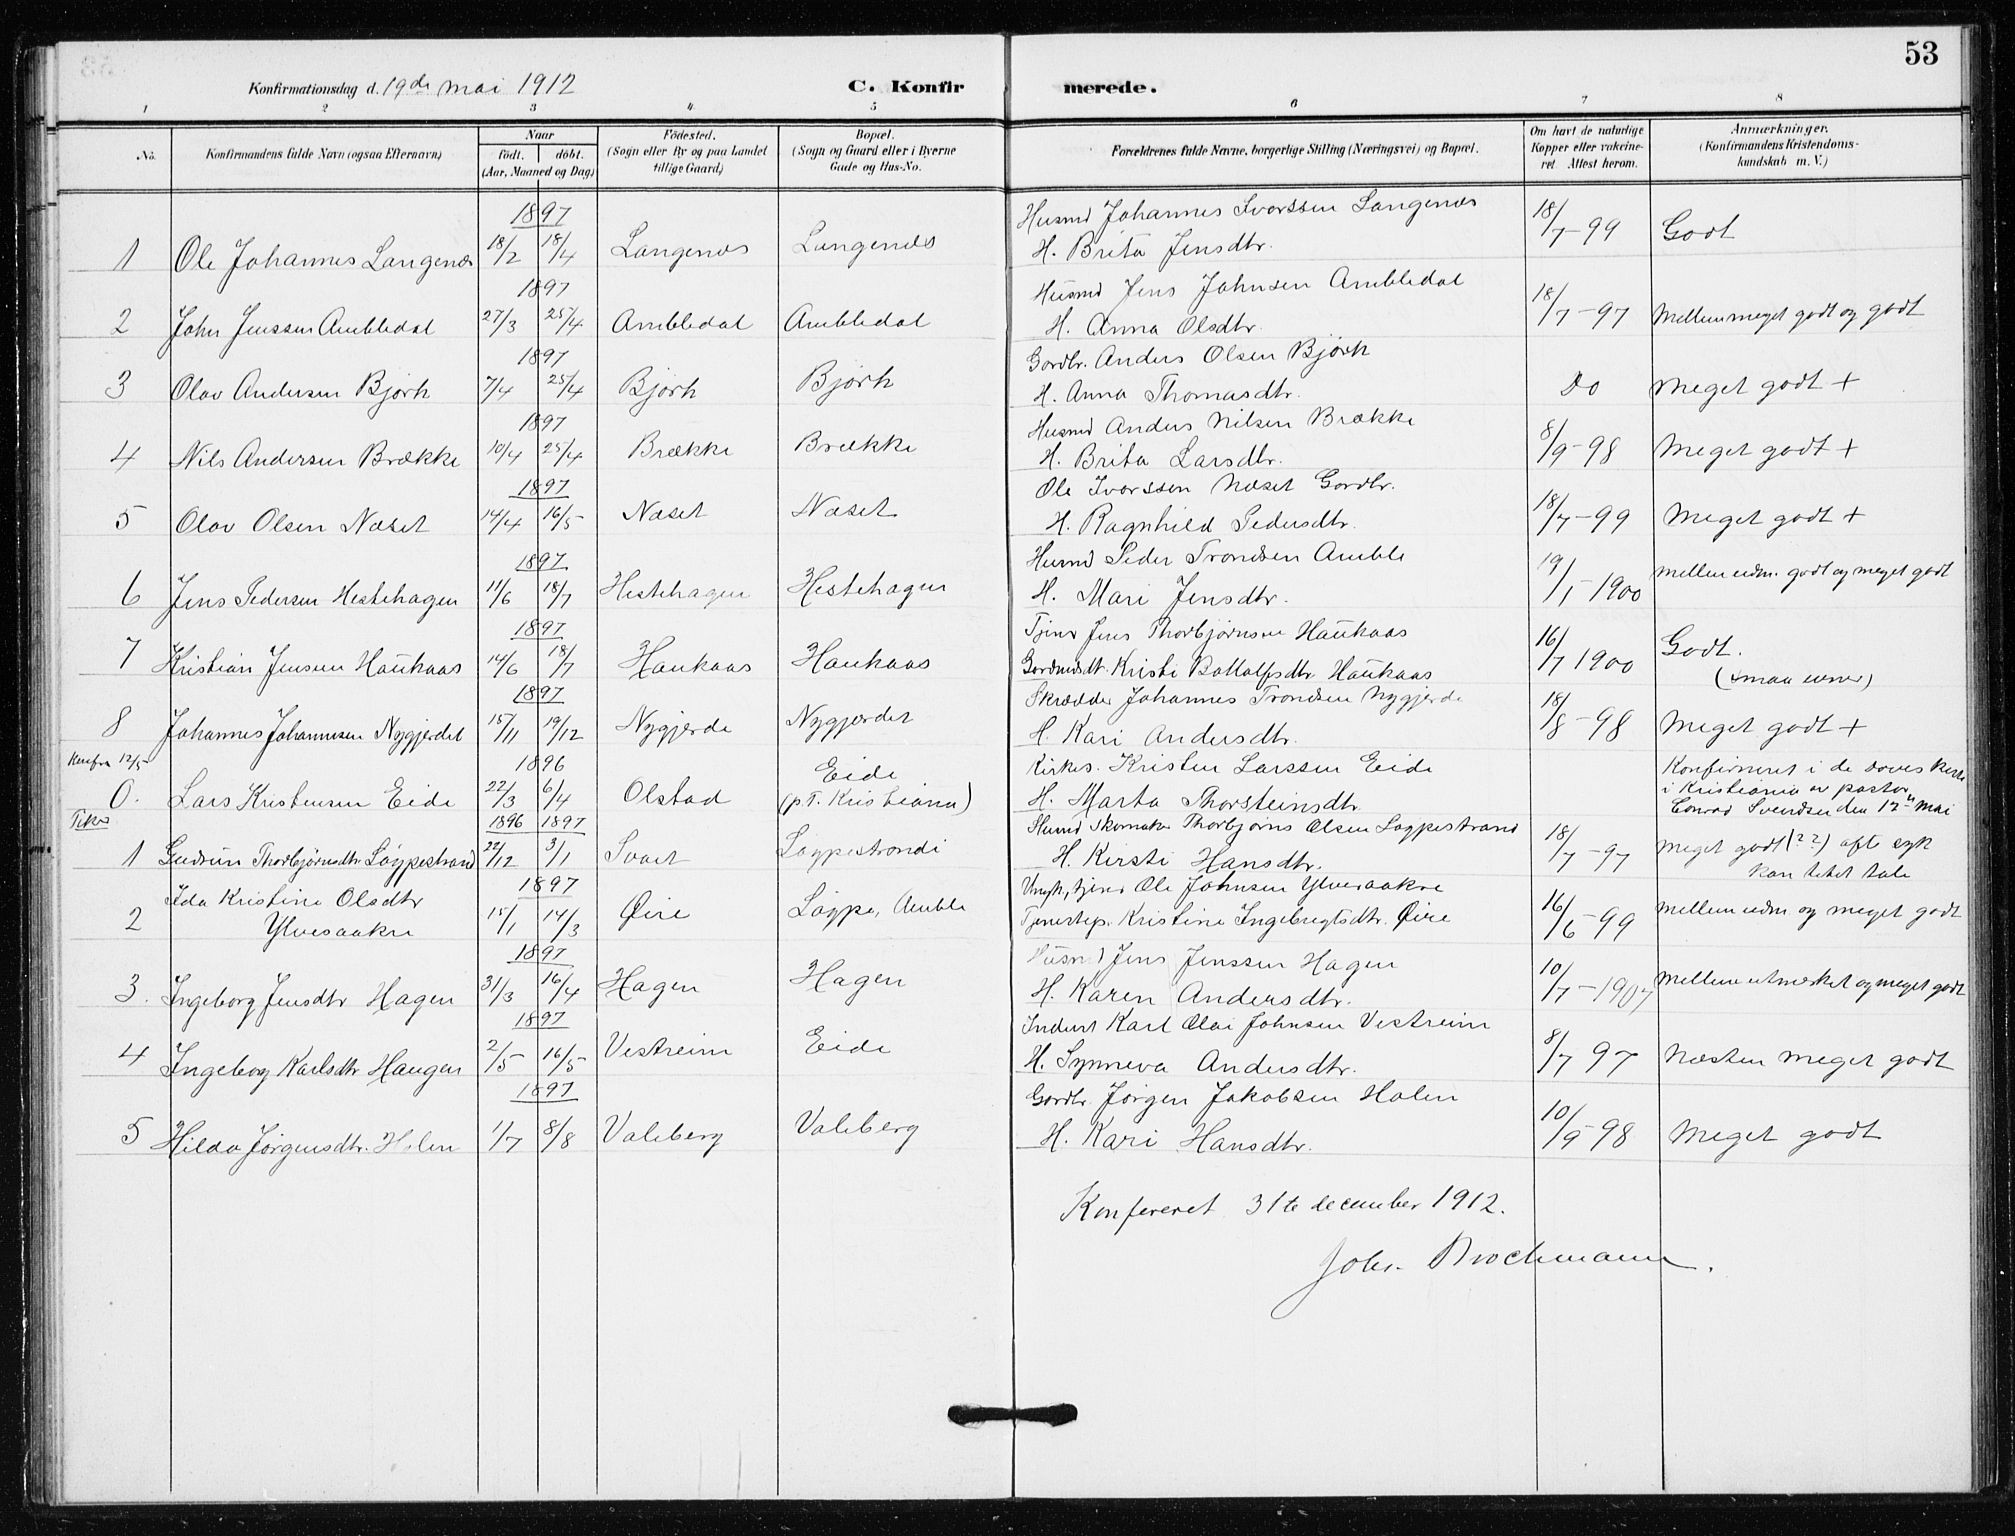 53
Konfirmationsdag d. 19de mai 1912
C. Konfir merede.
1 2 3 4 5 6 7 8
No.
Konfirmandens fulde Navn (ogsaa Efternavn)
Naar
födt. döbt.
(Aar, Maaned og Dag)
Födested.
(Sogn eller By og paa Landet
tillige Gaard)
Bopæl.
(Sogn og Gaard eller i Byerne
Gade og Hus-No.
Forældrenes fulde Navne, borgerlige Stilling (Næringsvei) og Bopæl.
Om havt de naturlige
Kopper eller vakcine-
ret Attest herom.
Anmærkninger.
(Konfirmandens Kristendoms-
kundskab m. V.)
1897 Husmd Johannes Ivarssen Langenæs
1 Ole Johannes Langenæs 18/2 18/4 Langenæs Langenæs H. Brita Jensdtr. 18/7-99 Godt
1897 Husmd Jens Johnsen Ambledal
2 John Jenssen Ambledal 27/3 25/4 Ambledal Ambledal H. Anna Olsdtr. 18/7-97 Mellem meget godt og godt
1897 Gardbr. Anders Olsen Bjørk
3 Olav Andersen Bjørk 7/4 25/4 Bjørk Bjørk H. Anna Thomasdtr. Do Meget godt +
1897 Husmd Anders Nilsen Brække
4 Nils Andersen Brække 10/4 25/4 Brække Brække H. Brita Larsdtr. 8/9-98 Meget godt +
1897 Ole Ivarssen Næset Gardbr.
5 Olav Olsen Næset 14/4 16/5 Næset Næset H. Ragnhild Pedersdtr. 18/7-99 Meget godt +
1897 Husmd Peder Trondsen Amble
6 Jens Pedersen Hestehagen 11/6 18/7 Hestehagen Hestehagen H. Mari Jensdtr. 19/1 1900 Mellem udm. godt og meget godt
1897 Tjener Jens Thorbjørnsen Haukaas
7 Kristian Jensen Haukaas 14/6 18/7 Haukaas Haukaas Gardmdsdt. Kristi Botolfsdtr. Haukaas 16/7 1900 Godt.
(smaa evner)
1897 Skrædder Johannes Trondsen Nygjerde
8 Johannes Johannesen Nygjerdet 15/11 19/12 Nygjerde Nygjerdet H. Kari Andersdtr. 18/8-98 Meget godt +
12/5
1896 Eide Kirkes. Kristen Larssen Eide
0. Lars Kristensen Eide 22/3 6/4 Olstad (p.t. Kristiania) H. Marta Thorsteinsdtr.
Konfirmeret i de døves kirke
i Kristiania av pastor
Conrad Svendsen den 12te mai
1896 1897 Husmd Skomaker Thorbjørns Olsen Løypestrand
1 Gudrun Thorbjørnsdtr. Løypestrand 22/12 3/1 Løypestrondi H. Kirsti Hansdtr. 18/7-97 Meget godt (??) ofte syk
kan litet tale
Ida Kristine Olsdtr 1897 Ungk, tjener Ole Johnsen Ylvesaakre
2 Ylvesaakre 15/1 14/3 Øire Løype, Amble Tjenestep. Kristine Ingebrigtsdtr. Øire 16/6-99 Mellem udm og meget godt
1897 Husmd Jens Jenssen Hagen
3. Ingeborg Jensdtr Hagen 31/3 16/4 Hagen Hagen H. Karen Andersdtr. 10/7-1907 Mellem utmerket og meget godt
1897 Inderst Karl Olai Johnsen Vestreim
4 Ingeborg Karlsdtr Haugen 2/5 16/5 Vestreim Eide H. Synneva Andersdtr. 8/7 97 Næsten meget godt
1897 Gardbr. Jørgen Jakobsen Holen
5 Hilda Jørgensdtr. Holen 1/7 8/8 Valeberg Valeberg H. Kari Hansdtr. 10/9-98 Meget godt
Konfereret 31te december 1912.
Johs. Brochmann.